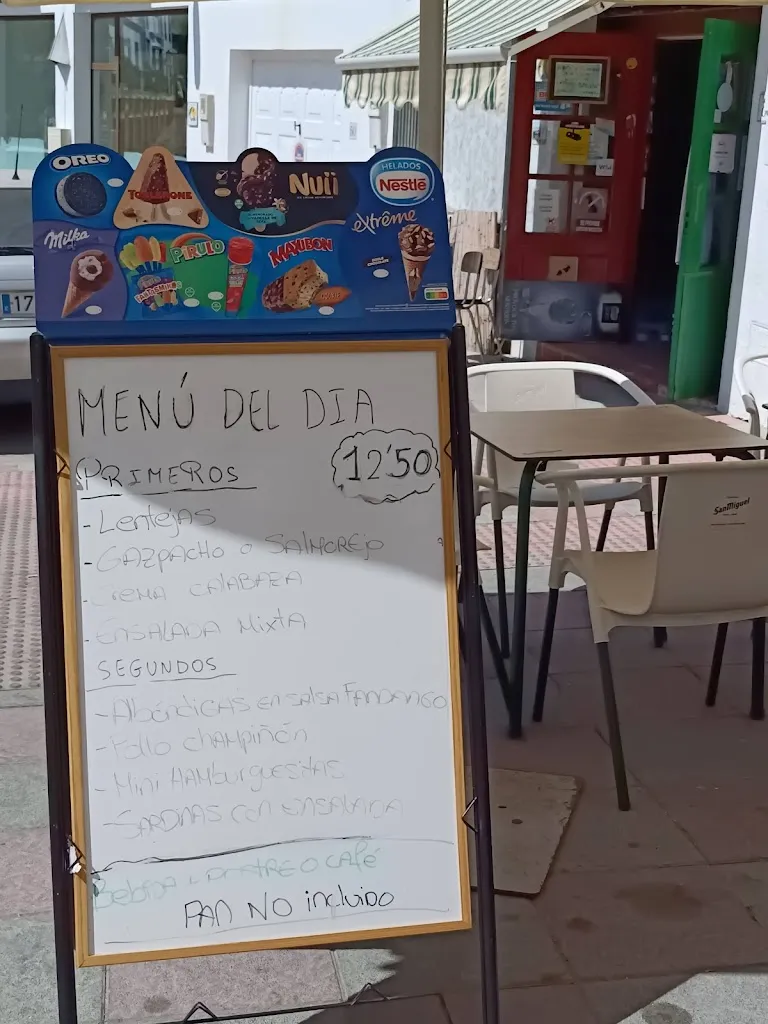 OREO
TOBLERONE
Nuii
HELADOS
Nestlé
extrême
Milka
FANTASMIKO
PIRULO
MAXIBON
17
SanMiguel
MENÚ DEL DIA
12'50
PRIMEROS
- Lentejas
- GAZPACHO o SALMOREJO
- CREMA CALABAZA
- ENSALADA MixTA
SEGUNDOS
- Albóndigas en salsa FANDANGO
- Pollo champiñón
- Mini HAMburguesitas
- SARDINAS con ensalada
Bebida y postre o café
PAN NO incluido